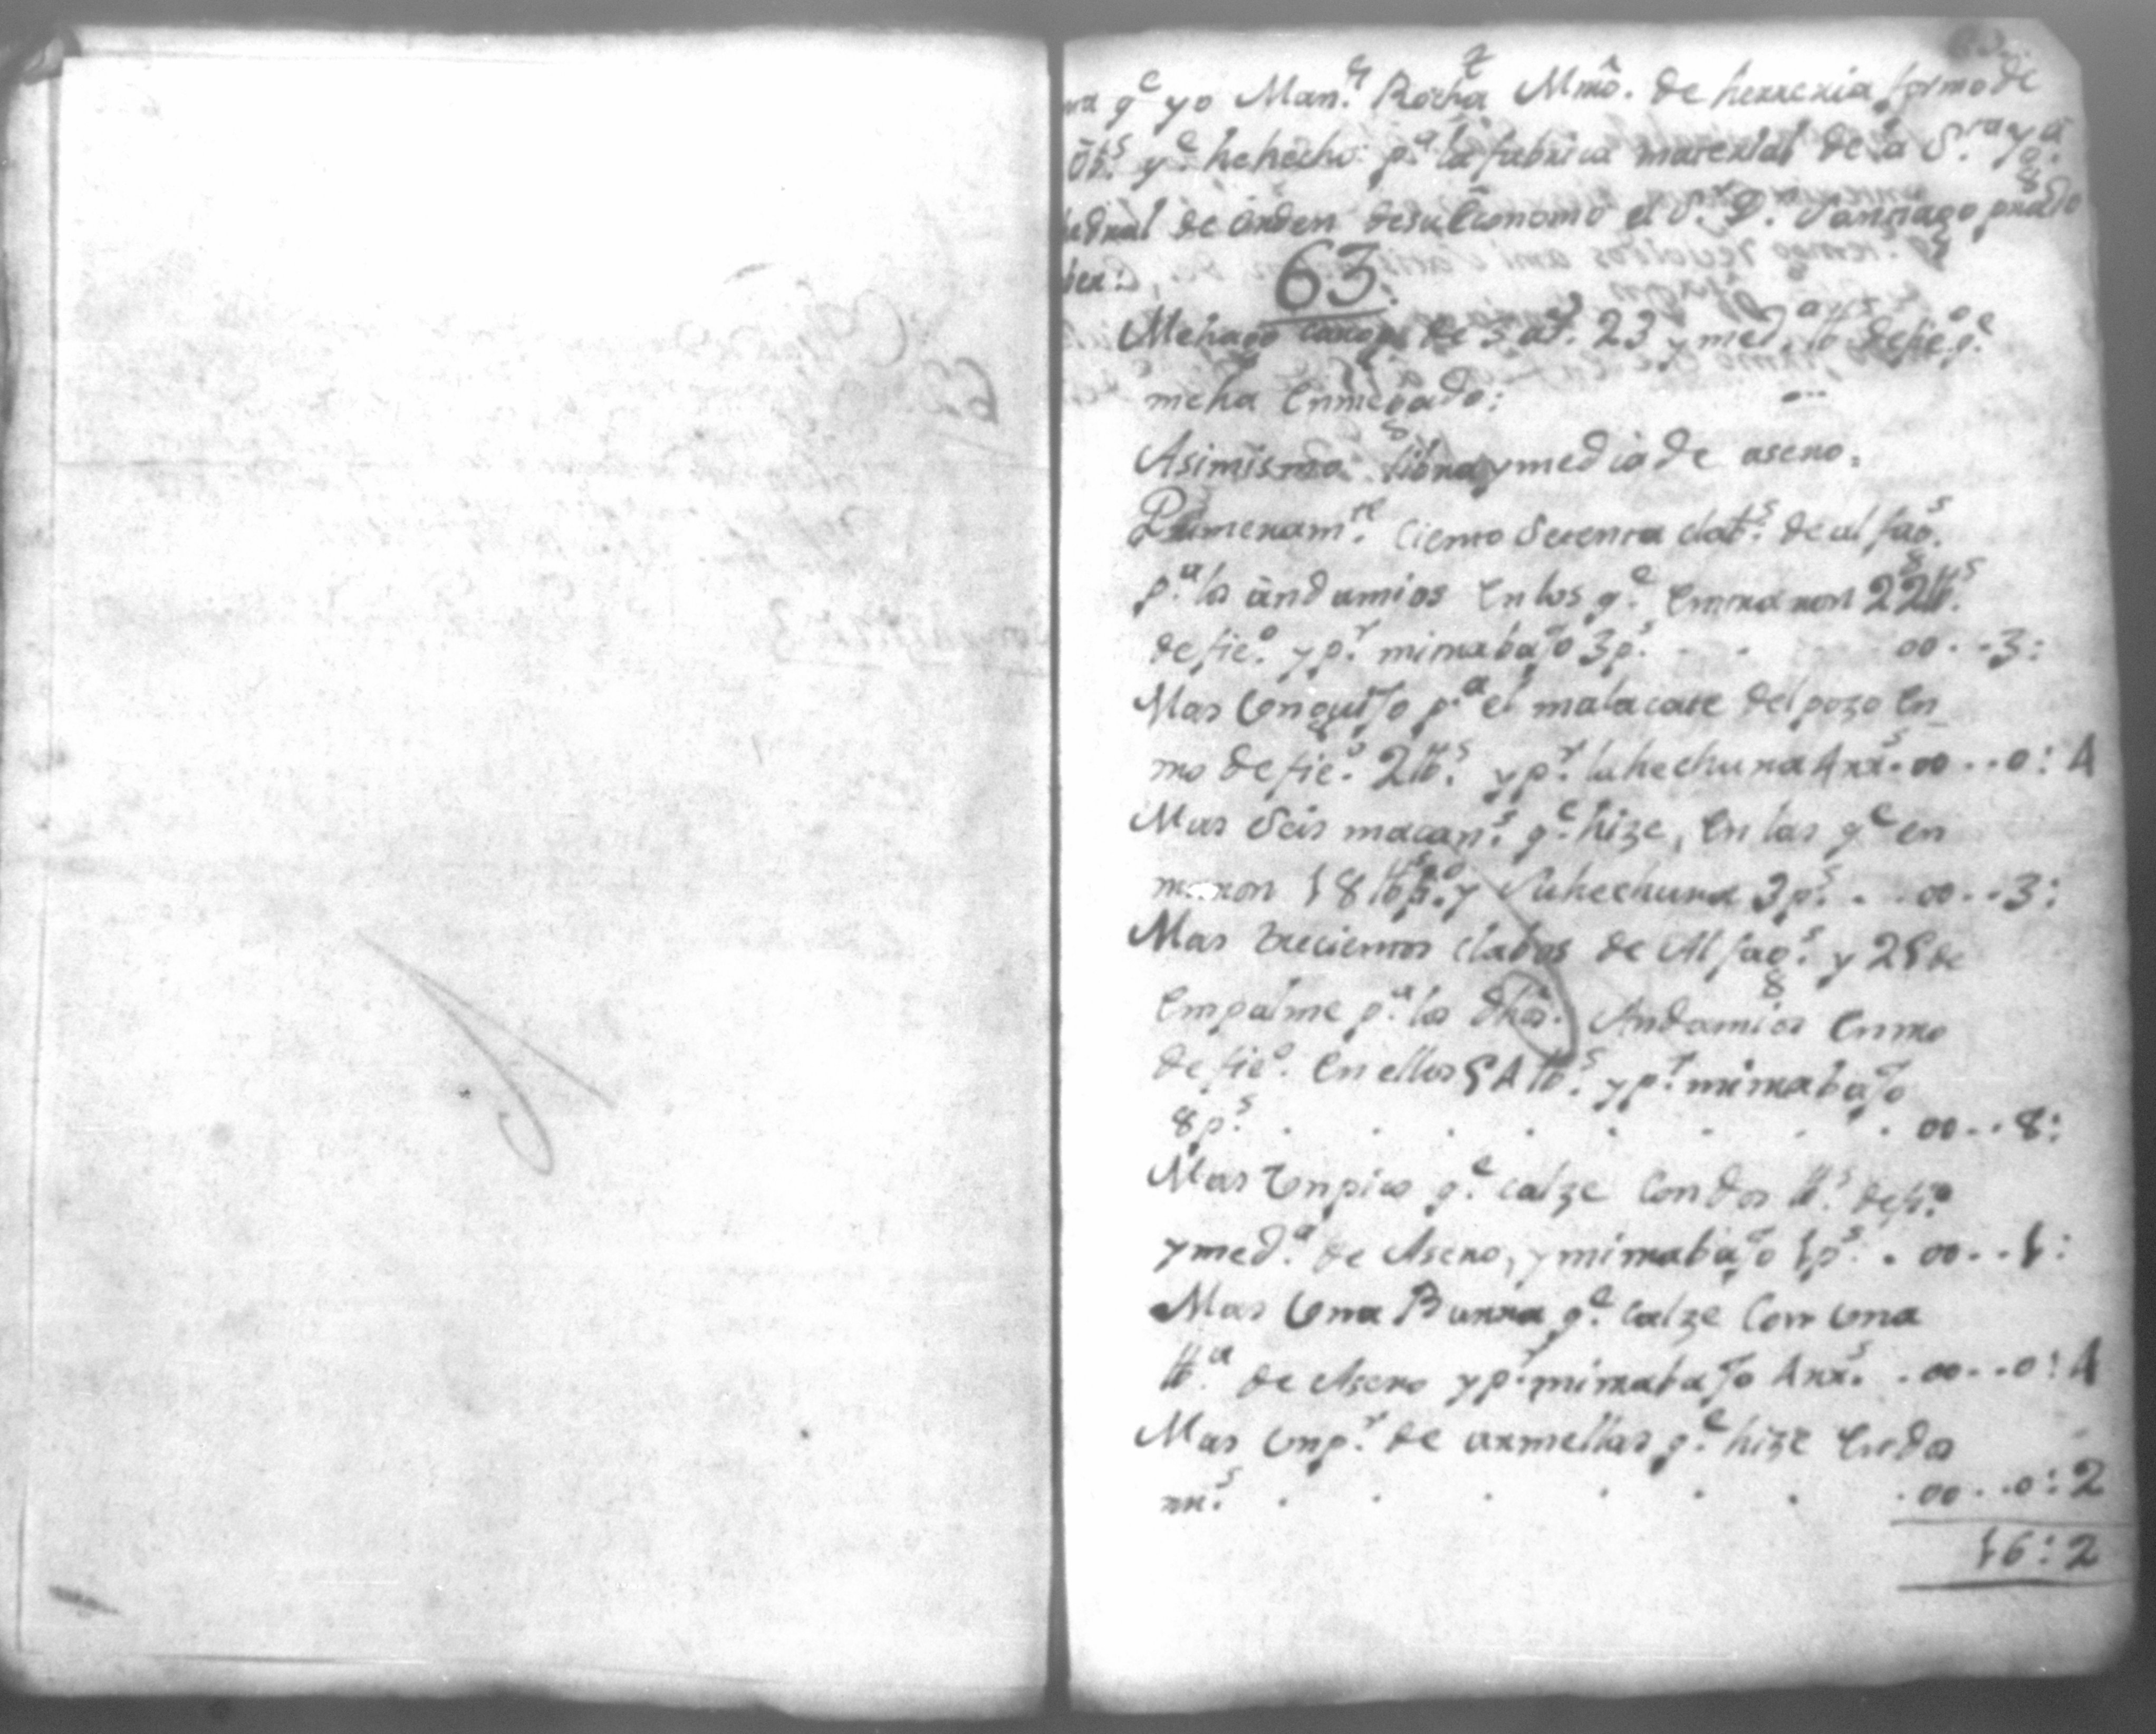 q.e yo Man.l Rocha Mrô. de herreria formo de
q.e he hecho p.a la fabrica material de la S.ta Yg.a
hedral de orden de su Economo el S.r D. Santiago prado
63.
Me hago cargo de 5 ar.s 23 y med.a lb.s de fie.o q.e
me ha Entregado:
Asimismo libra y media de asero,
Primeram.te Ciento Setenta clab.s de alfag.s
p.a los andamios En los q.e Entraron 22 lb.s
de fie.o y p.r mi trabajo 3 p.s . . 00 . . 3:
Mas Un quijo p.a el malacate del pozo En
tro de fie.o 2 lb.s y p.r la hechura 4 rr.s . 00 . . 0: 4
Mas Seis macan.s q.e hize, En las q.e en
traron 18 lb.s y Su hechura 3 p.s . . 00 . . 3:
Mas trecientos clabos de Alfag.s y 25 de
Empalme p.a los dhôs. Andamios Entro
de fie.o En ellos 54 lb.s y p.r mi trabajo
8 p.s . . . . . . . . 00 . . 8:
Mas Un pico q.e calze Con dos lb.s de fi.o
y med.a de Asero, y mi trabajo 1 p.s . 00 . . 1:
Mas Una Barra q.e calze Con Una
lb.a de Asero y p.r mi trabajo 4 rr.s . 00 . . 0: 4
Mas Un p.r de armellas q.e hize En dos
rr.s . . . . . . . 00 . . 0: 2
16: 2